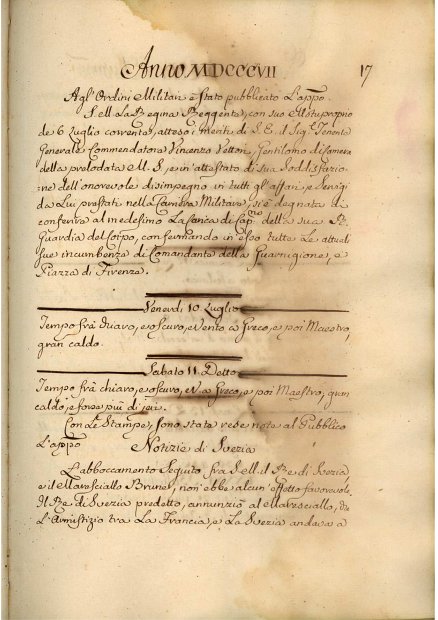 Anno MDCCCVII 17
Agl'Ordini Militari è stato pubblicato l'appo.
S. M. La Regina Reggente, con suo Mstuproprio
de 6 Luglio corrente, attesi i meriti di S. E. il Sig.e Tenente
Generale Commendatore Vincenzo Vettori Gentilomo di Camera
della prelodata M. S, e in attestato di sua Soddisfazio-
ne dell'onorevole disimpegno in tutti gl'affari, e Servigi
da Lui prestati nella Carriera Militare, si è degnata di
conferire al medesimo La Carica di Cap.no della sua R.
Guardia del Corpo, confermando in esso tutte Le attuali
sue incumbenze di Comandante della Guarnigione, e
Piazza di Firenze.
Venerdì 10 Luglio
Tempo frà chiaro, e oscuro, e Vento a Greco, e poi Maestro,
gran caldo.
Sabato 11. Detto
Tempo frà chiaro, e oscuro, e V. a Greco, e poi Maestro; gran
caldo, e forse più di jeri.
Con Le Stampe, sono state rese note al Pubblico
L'appo
Notizie di Svezia
L'abboccamento Seguito fra S. M. il Re di Svezia
e il Maresciallo Brune, non ebbe alcun'effetto favorevole.
Il Re di Svezia predetto, annunziò al Maresciallo, che
L'Armistizio tra La Francia, e La Svezia andava a